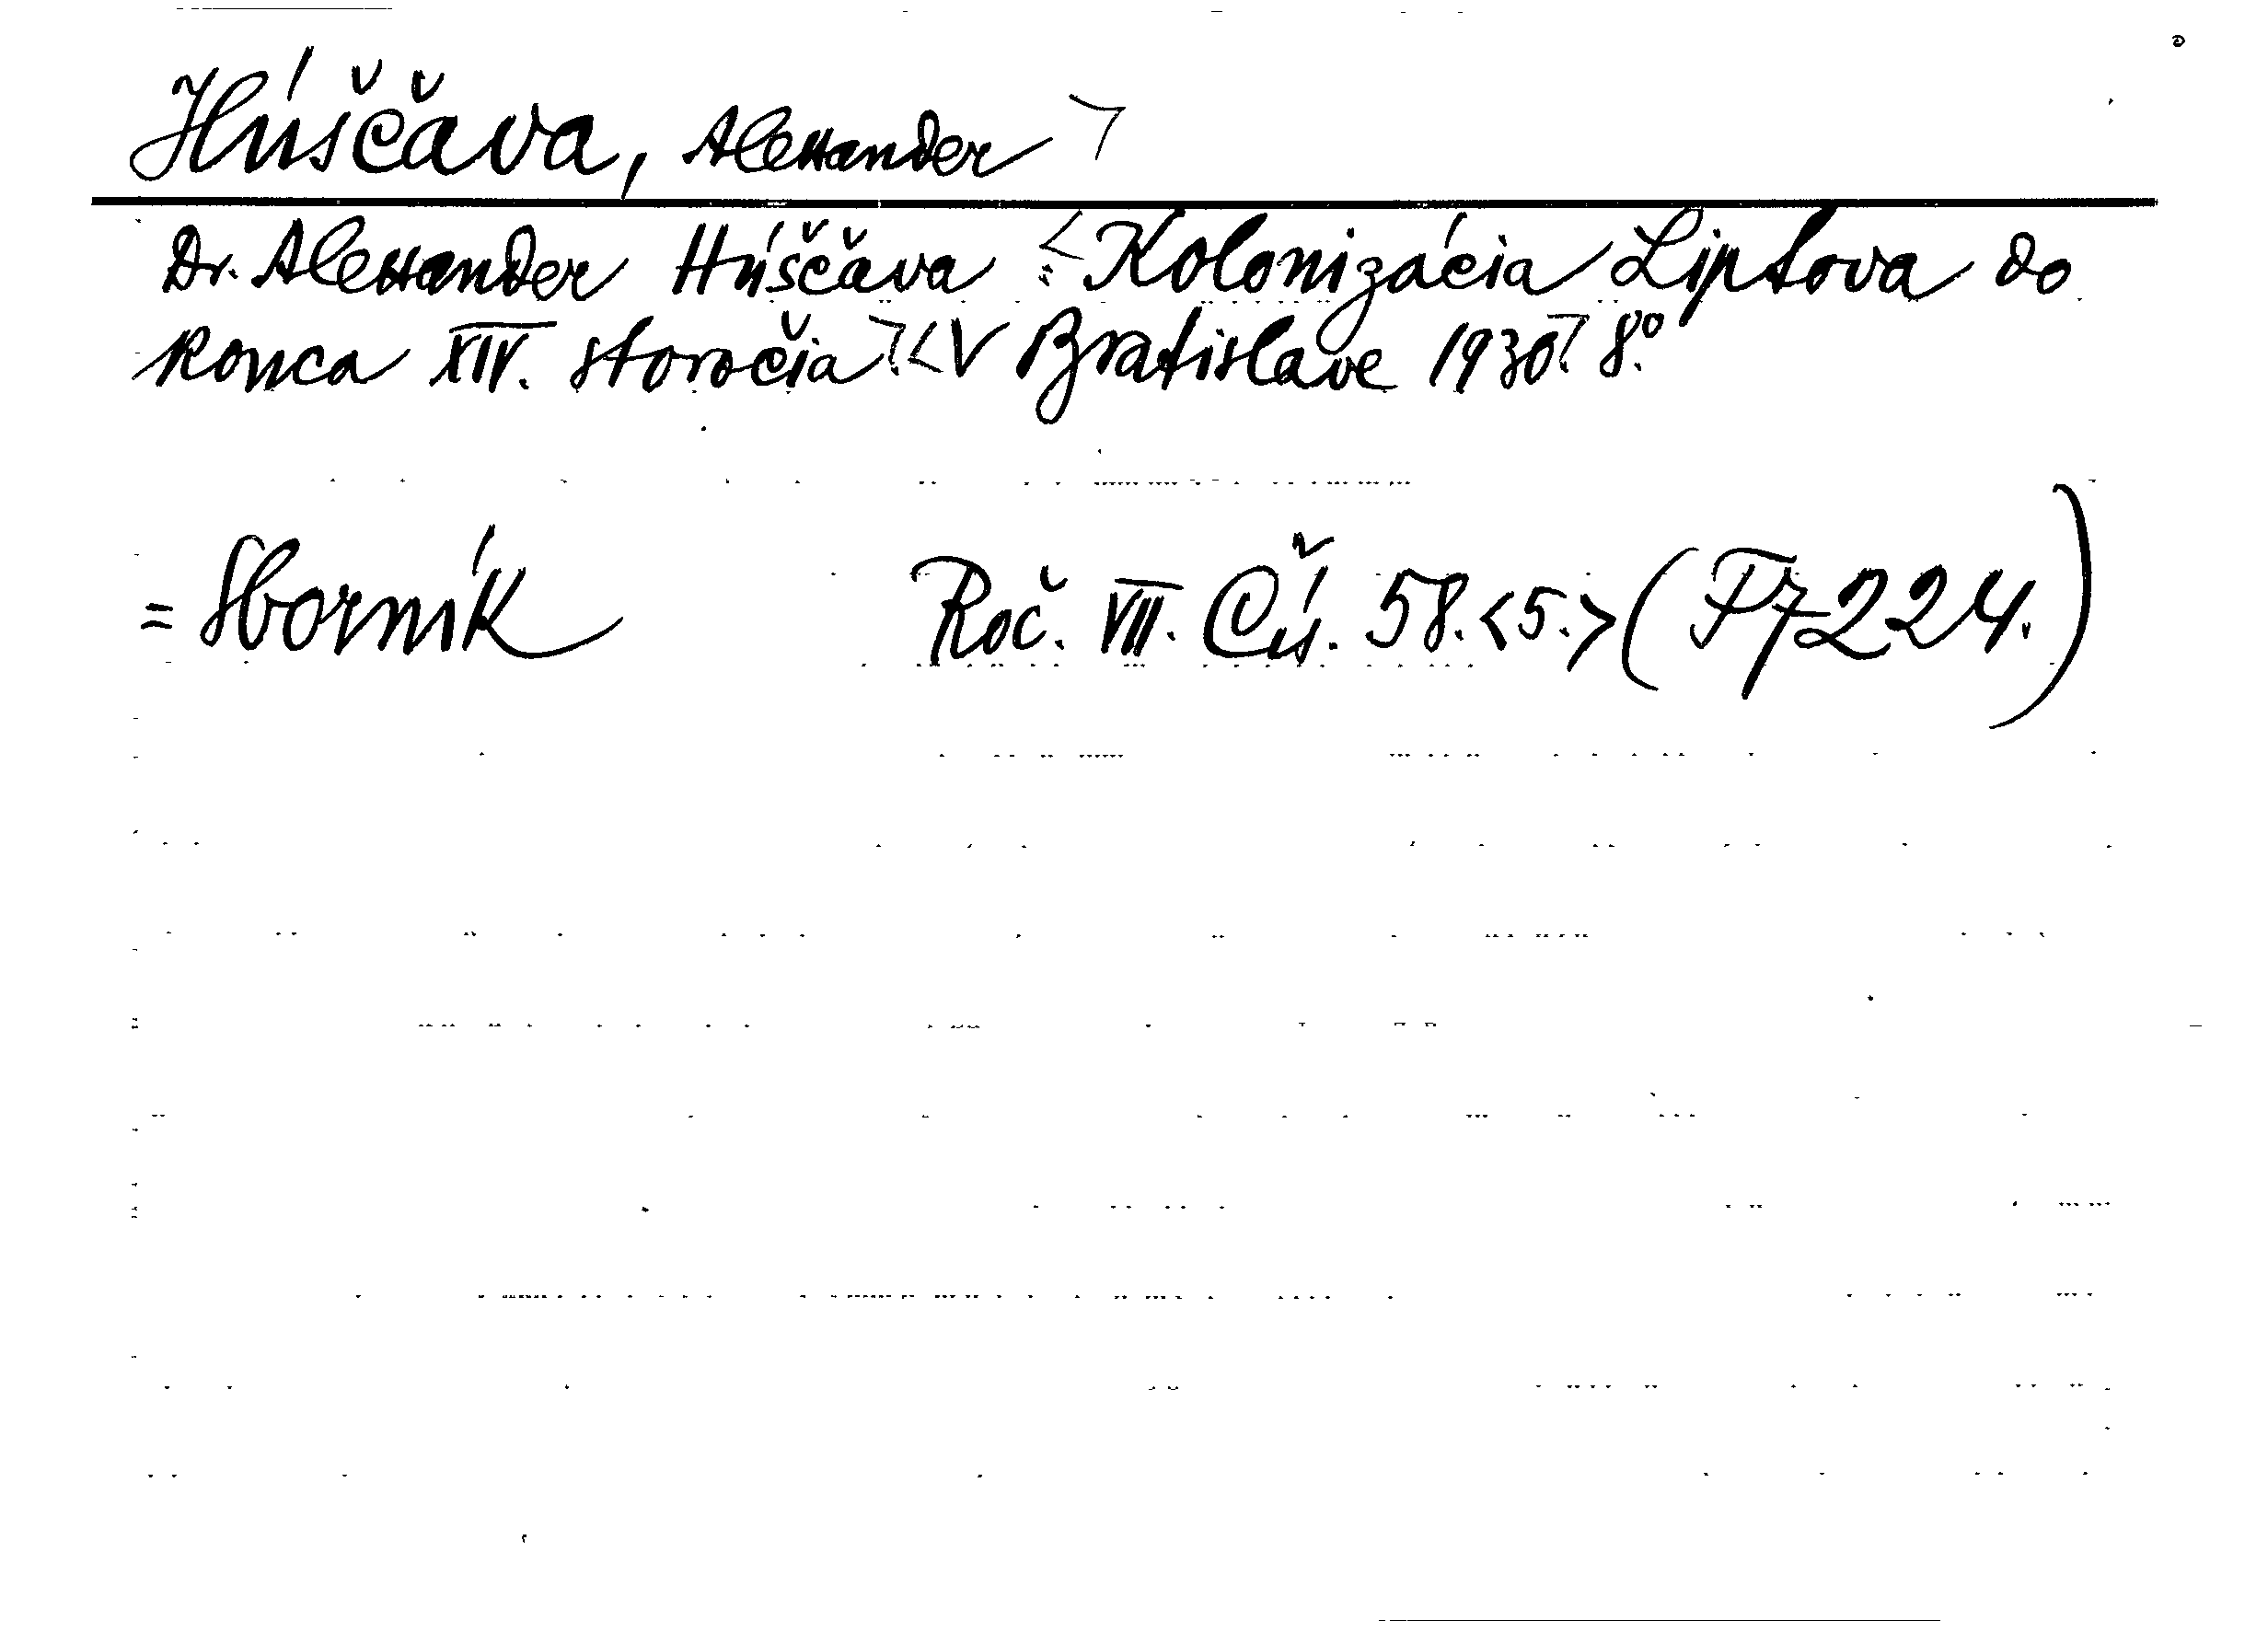 Húščava, Alexander >
Dr. Alexander Húščava <: Kolonizácia Liptova do
konca XIV. storočia.> <V Bratislave 1930.> 8º.
= Sborník Roč. VII. Čís. 58. <5.> (F7224.)